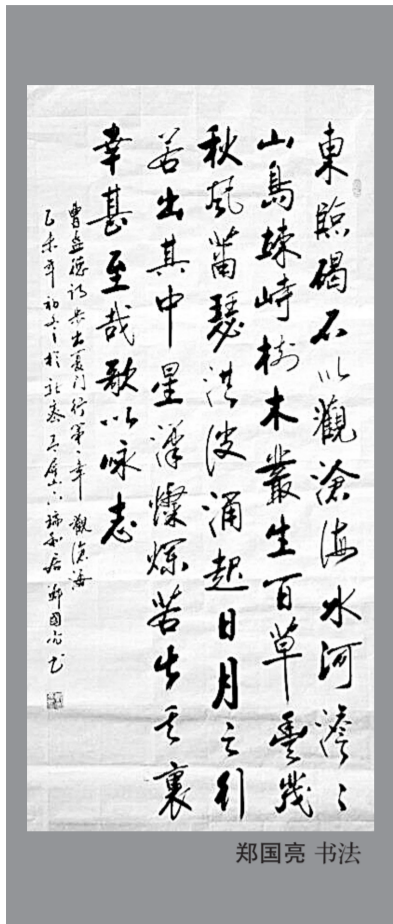 東臨碣石以觀滄海水河澹〻
山島竦峙樹木叢生百草豐茂
秋風蕭瑟洪波涌起日月之行
若出其中星漢燦爛若出其裏
幸甚至哉歌以詠志
曹孟德詩步出夏門行第一章 觀滄海
乙未年初冬於 山 居鄭國亮书
郑国亮 书法